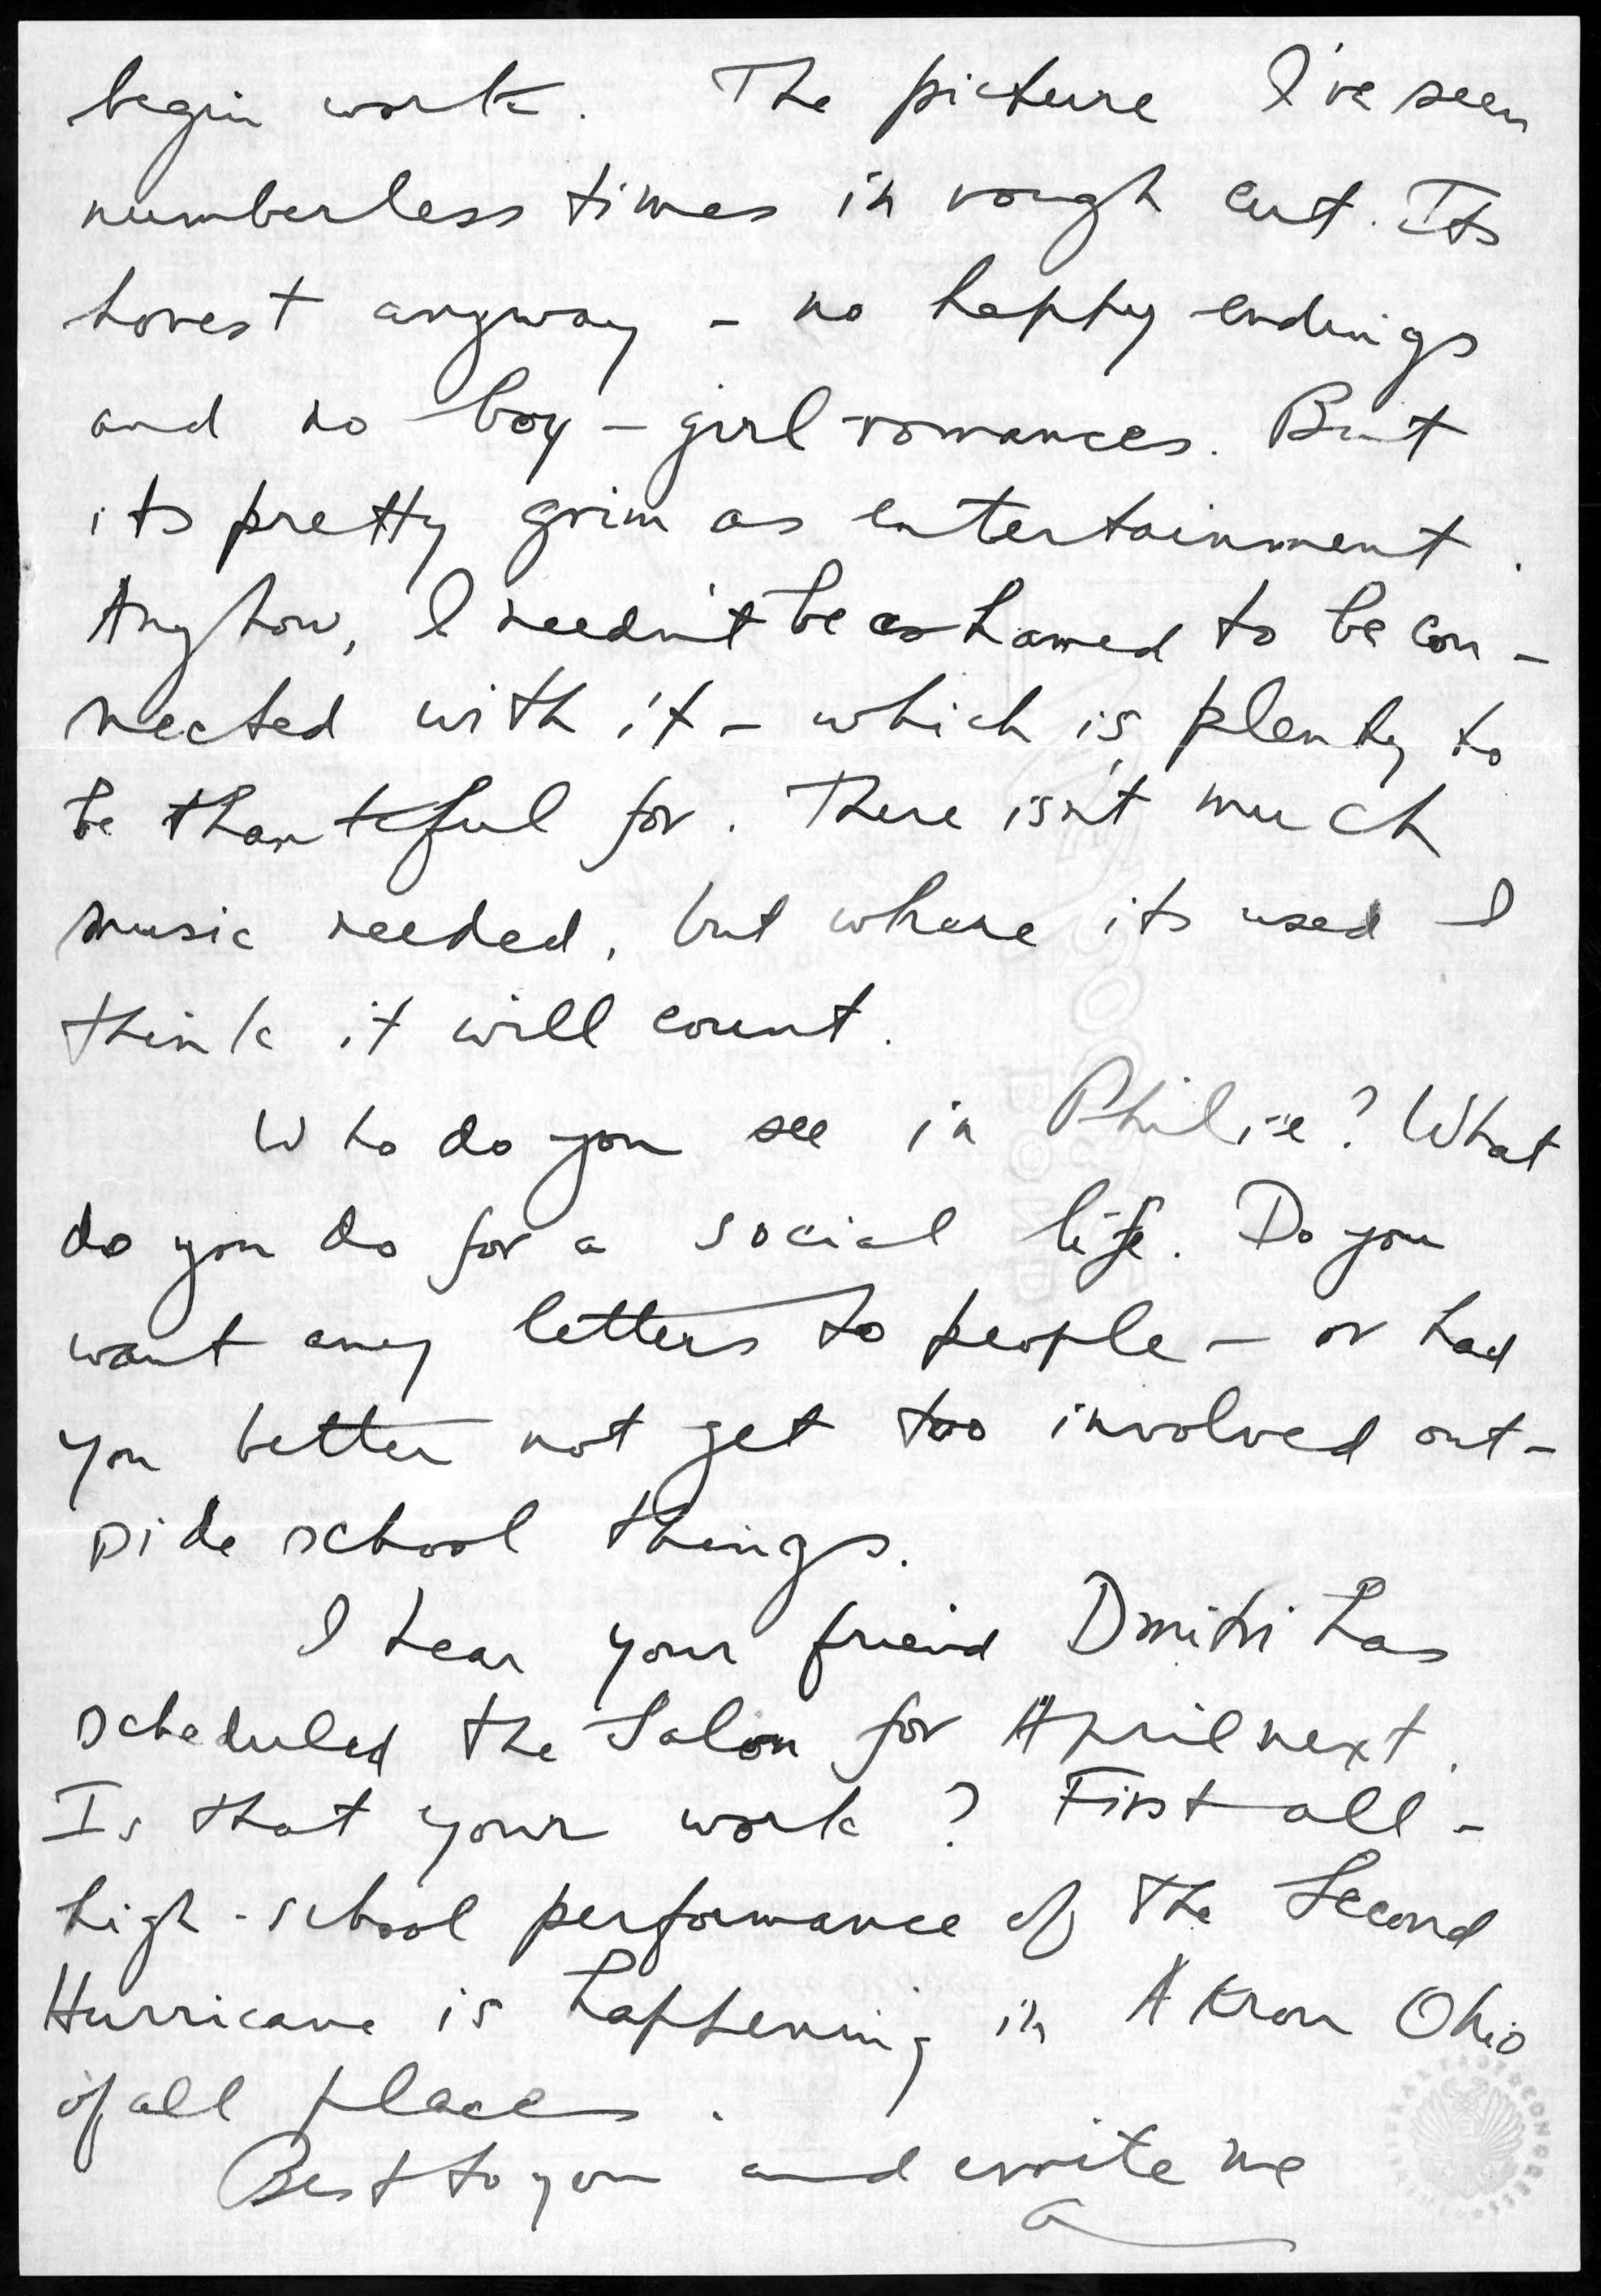 begin work. The picture I've seen
numberless times in rough cut. Its
honest anyway – no happy endings
and no boy – girl romances. But
its pretty grim as entertainment.
Anyhow, I needn't be ashamed to be con-
nected with it – which is plenty to
be thankful for. There isn't much
music needed, but where its used I
think it will count.
Who do you see in Philie? What
do you do for a social life. Do you
want any letters to people – or had
you better not get too involved out-
side school things.
I hear your friend Dmitri has
scheduled the Salon for April next.
Is that your work? First all-
high-school performance of the Second
Hurricane is happening in Akron Ohio
of all places.
Best to you and write me
A